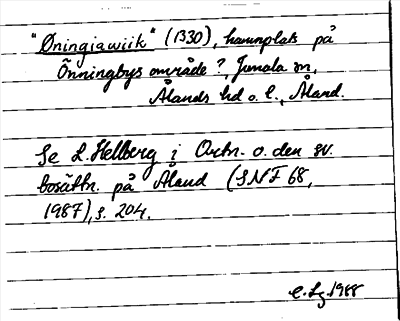 "Øningiawiik" (1330), hamnplats på
Önningbys område?, Jomala sn,
Ålands hd o. l., Åland.
Se L. Hellberg i Ortn. o. den sv.
bosättn. på Åland (SNF 68,
1987), s. 204.
1988